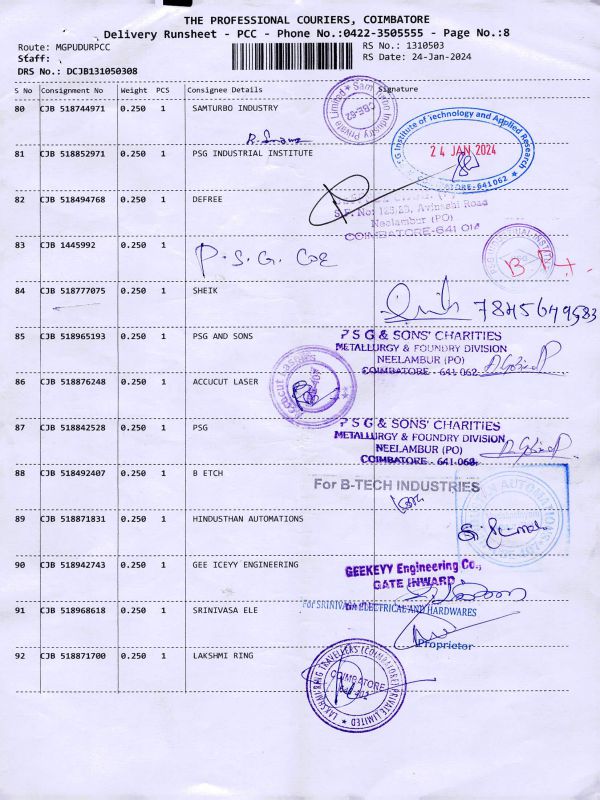 THE PROFESSIONAL COURIERS, COIMBATORE
Delivery Runsheet - PCC - Phone No.:0422-3505555 - Page No.:8
Route: MGPUDURPCC
RS No.: 1310503
Staff:
RS Date: 24-Jan-2024
DRS No.: DCJB131050308
S No Consignment No Weight PCS Consignee Details Signature
80 CJB 518744971 0.250 1 SAMTURBO INDUSTRY
Industry Private Limited
CBE-62
81 CJB 518852971 0.250 1 PSG INDUSTRIAL INSTITUTE
G Institute of Technology and Applied Research
24 JAN 2024
COIMBATORE-641062
82 CJB 518494768 0.250 1 DEFREE
S.F. No: 125/23, Avinashi Road
Neelambur (PO)
COIMBATORE-641 014
83 CJB 1445992 0.250 1 P.S.G. COE
84 CJB 518777075 0.250 1 SHEIK
85 CJB 518965193 0.250 1 PSG AND SONS
P S G & SONS' CHARITIES
METALLURGY & FOUNDRY DIVISION
NEELAMBUR (PO)
COIMBATORE - 641 062
86 CJB 518876248 0.250 1 ACCUCUT LASER
87 CJB 518842528 0.250 1 PSG
P S G & SONS' CHARITIES
METALLURGY & FOUNDRY DIVISION
NEELAMBUR (PO)
COIMBATORE - 641 062
88 CJB 518492407 0.250 1 B ETCH
For B-TECH INDUSTRIES
89 CJB 518871831 0.250 1 HINDUSTHAN AUTOMATIONS
90 CJB 518942743 0.250 1 GEE ICEYY ENGINEERING
GEEKEYY Engineering Co.,
GATE INWARD
91 CJB 518968618 0.250 1 SRINIVASA ELE
For SRINIVASA ELECTRICAL AND HARDWARES
Proprietor
92 CJB 518871700 0.250 1 LAKSHMI RING
LAKSHMI RING TRAVELLERS (COIMBATORE) PRIVATE LIMITED
COIMBATORE
641 402